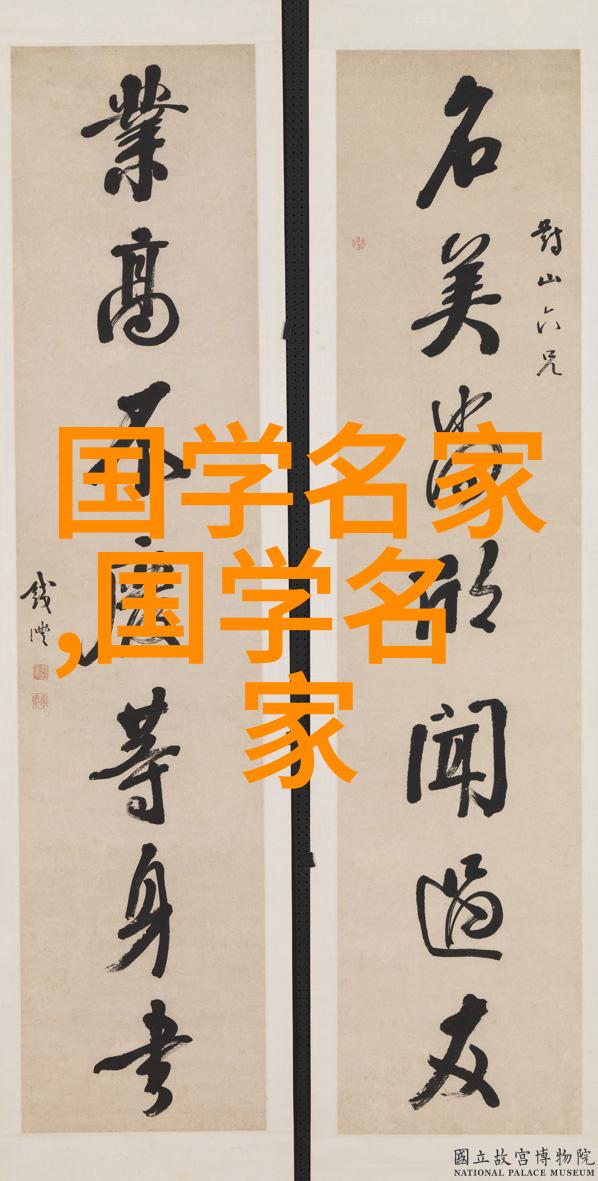 国学名家
,国学名
家
對山六兄
名美尚欣聞過友
業高不廢等身書
錢灃
國立故宮博物院
NATIONAL PALACE MUSEUM